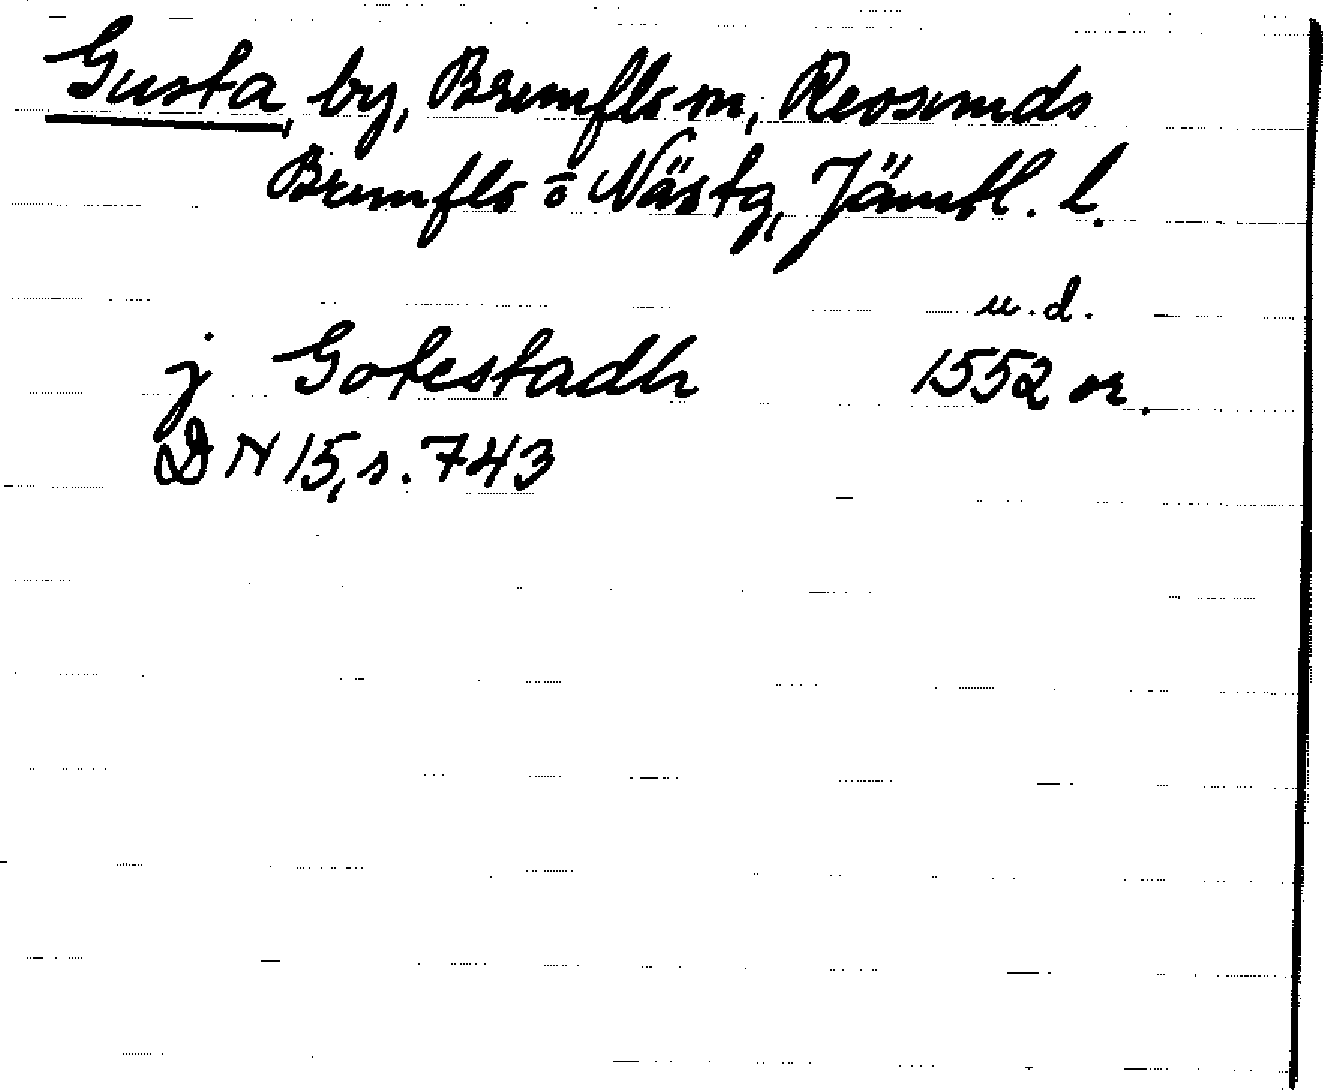 Gusta, by, Brunflo sn, Revsunds
Brunflo o Näs tg, Jämtl. l.
u.d.
j Gotestadh 1552 or.
DN 15, s. 743